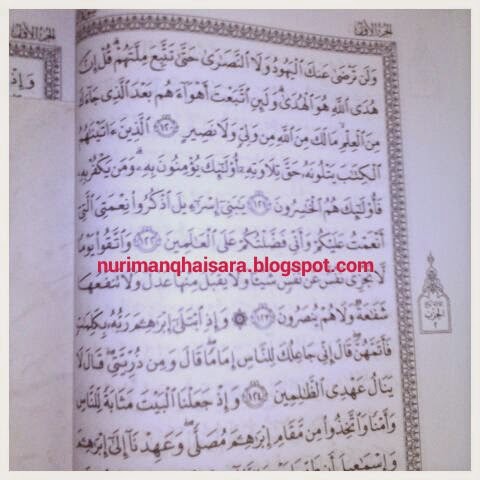 الجزء الأول
وَلَن تَرْضَىٰ عَنكَ ٱلْيَهُودُ وَلَا ٱلنَّصَٰرَىٰ حَتَّىٰ تَتَّبِعَ مِلَّتَهُمْ ۗ قُلْ إِنَّ
هُدَى ٱللَّهِ هُوَ ٱلْهُدَىٰ ۗ وَلَئِنِ ٱتَّبَعْتَ أَهْوَآءَهُم بَعْدَ ٱلَّذِى جَآءَكَ
مِنَ ٱلْعِلْمِ ۙ مَا لَكَ مِنَ ٱللَّهِ مِن وَلِىٍّ وَلَا نَصِيرٍ ١٢٠ ٱلَّذِينَ ءَاتَيْنَٰهُمُ
ٱلْكِتَٰبَ يَتْلُونَهُۥ حَقَّ تِلَاوَتِهِۦٓ أُو۟لَٰٓئِكَ يُؤْمِنُونَ بِهِۦ ۗ وَمَن يَكْفُرْ بِهِۦ
فَأُو۟لَٰٓئِكَ هُمُ ٱلْخَٰسِرُونَ ١٢١ يَٰبَنِىٓ إِسْرَٰٓءِيلَ ٱذْكُرُوا۟ نِعْمَتِىَ ٱلَّتِىٓ
أَنْعَمْتُ عَلَيْكُمْ وَأَنِّى فَضَّلْتُكُمْ عَلَى ٱلْعَٰلَمِينَ ١٢٢ وَٱتَّقُوا۟ يَوْمًا
nurimanqhaisara.blogspot.com
لَّا تَجْزِى نَفْسٌ عَن نَّفْسٍ شَيْـًٔا وَلَا يُقْبَلُ مِنْهَا عَدْلٌ وَلَا تَنفَعُهَا
شَفَٰعَةٌ وَلَا هُمْ يُنصَرُونَ ١٢٣ ۞ وَإِذِ ٱبْتَلَىٰٓ إِبْرَٰهِـۧمَ رَبُّهُۥ بِكَلِمَٰتٍ
فَأَتَمَّهُنَّ ۖ قَالَ إِنِّى جَاعِلُكَ لِلنَّاسِ إِمَامًا ۖ قَالَ وَمِن ذُرِّيَّتِى ۖ قَالَ لَا
يَنَالُ عَهْدِى ٱلظَّٰلِمِينَ ١٢٤ وَإِذْ جَعَلْنَا ٱلْبَيْتَ مَثَابَةً لِّلنَّاسِ
وَأَمْنًا وَٱتَّخِذُوا۟ مِن مَّقَامِ إِبْرَٰهِـۧمَ مُصَلًّى ۖ وَعَهِدْنَآ إِلَىٰٓ إِبْرَٰهِـۧمَ
وَإِسْمَٰعِيلَ أَن طَهِّرَا